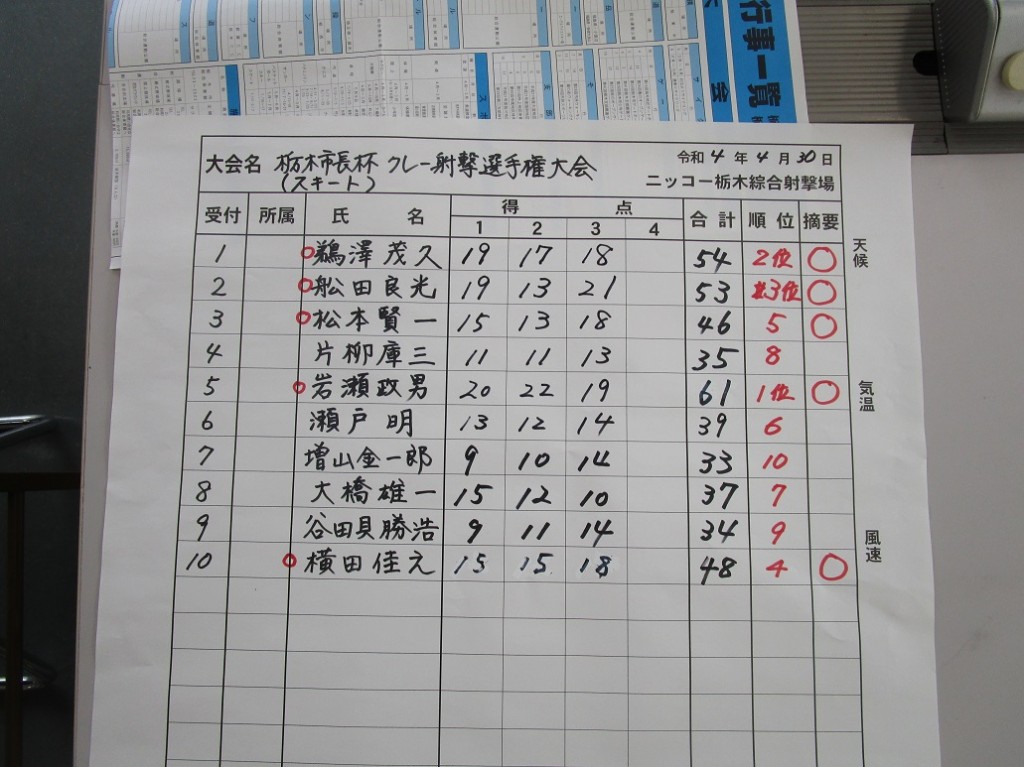 行事一覧
大会名 栃木市長杯 クレー射撃選手権大会
(スキート)
令和4年4月30日
ニッコー栃木綜合射撃場
受付 所属 氏名 得点 合計 順位 摘要
1 2 3 4
1 鵜澤茂久 19 17 18 54 2位 ○
2 舩田良光 19 13 21 53 3位 ○
3 松本賢一 15 13 18 46 5 ○
4 片柳庫三 11 11 13 35 8
5 岩瀬政男 20 22 19 61 1位 ○
6 瀬戸明 13 12 14 39 6
7 増山金一郎 9 10 14 33 10
8 大橋雄一 15 12 10 37 7
9 谷田貝勝浩 9 11 14 34 9
10 横田佳之 15 15 18 48 4 ○
天候
気温
風速